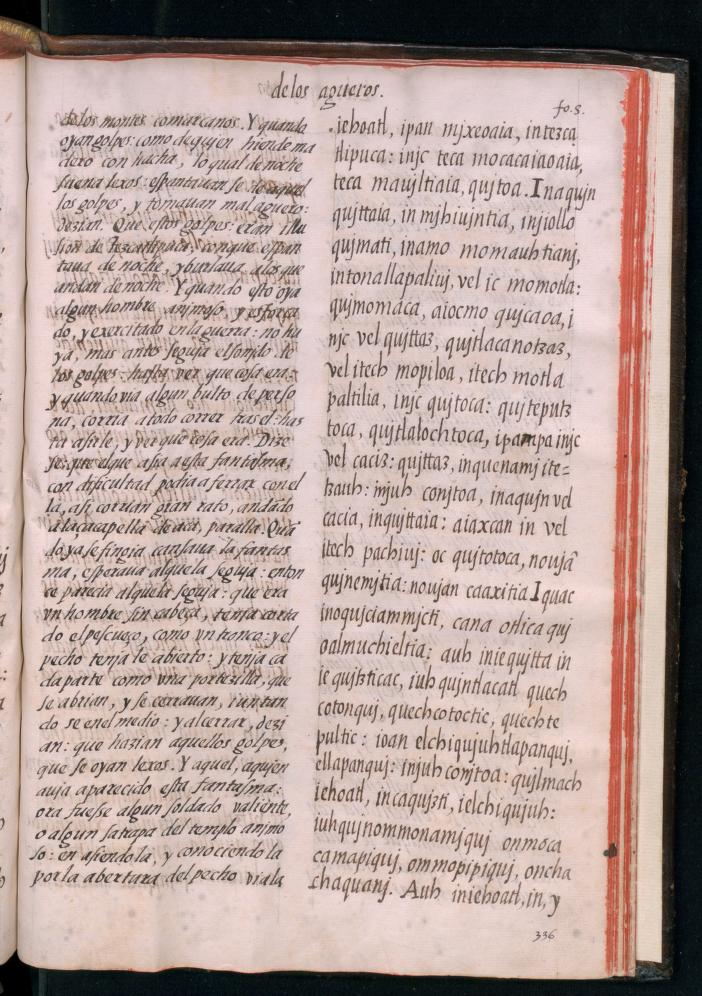 de los agueros.
fo. 8.
de los montes comarcanos. Y quando
oyan golpes: como de quien hiende ma
dero con hacha, lo qual de noche
suena lexos: espantauan se de aquel
los golpes, y tomauan mal aguero:
dezian. Que estos golpes: eran illu
sion de Tezcatlipuca, con que espan
taua de noche, y burlaua a los que
andan de noche. Y quando esto oya
algun hombre animoso, y esforça
do, y exercitado en la guerra: no hu
ya, mas antes seguja el sonjdo de
los golpes: hasta ver que cosa era:
y quando via algun bulto de perso
na, corria a todo correr tras el: has
ta asirle, y ver que cosa era. Dize
se: que el que asia a esta fantasma;
con dificultad podia aferrar con el
la, asi corrian gran rato, andãdo
a la çacapella de aca, paralla. Quã
do ya se fingia cansaua la fantas
ma, esperaua alque la seguja: enton
ce parecia alque la seguja: que era
vn hombre sin cabeça, tenja corta
do el pescueço, como vn tronco: y el
pecho tenja le abierto: y tenja ca
da parte como vna portezilla, que
se abrian, y se cerrauan, iuntan
do se en el medio: y al cerrar, dezi
an: que hazian aquellos golpes,
que se oyan lexos. Y aquel, aqujen
auja aparecido esta fantasma:
ora fuesse algun soldado valiente,
o algun satrapa del templo anjmo
so: en asiendola, y conociendo la
por la abertura del pecho viala
iehoatl, ipan mjxeoaia, in tezca
tlipuca: injc teca mocacaiaoaia,
teca maujltiaia, qujtoa. In aqujn
qujttaia, in mjhiujntia, injiollo
qujmati, in amo momauhtianj,
in tonallapaliuj, vel ic momotla:
qujmomaca, aiocmo qujcaoa, i
njc vel qujttaz, qujtlacanotzaz,
vel itech mopiloa, itech motla
paltilia, injc qujtoca: qujteputz
toca, qujtlalochtoca, ipampa injc
vel caciz: qujttaz, in quenamj ite=
tzauh: mjuh conjtoa, in aqujn vel
cacia, in qujttaia: aiaxcan in vel
itech pachiuj: oc qujtotoca, noujã
qujnemjtia: noujan caaxitia Iquac
in oqujciammjcti, cana otlica quj
oalmuchieltia: auh in ie qujtta in
ie qujtzticac, iuhqujn tlacatl quech
cotonquj, quechcotoctic, quechte
pultic: ioan elchiqujuhtlapanquj,
ellapanquj: injuh conjtoa: qujlmach
iehoatl, in caqujzti, ielchiqujuh:
iuhqujn ommonamjquj onmoca
camapiquj, ommopipiquj, oncha
chaquanj. Auh in iehoatl, in, y
336